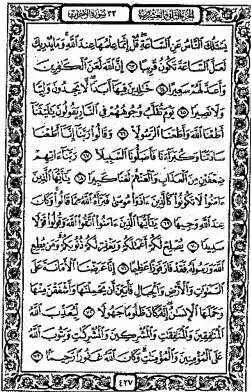 الجزء الثاني والعشرون ٣٣ سورة الأحزاب
يسئلك الناس عن الساعة قل إنما علمها عند الله وما يدريك
لعل الساعة تكون قريبا ٦٣ إن الله لعن الكفرين
وأعد لهم سعيرا ٦٤ خلدين فيها أبدا لا يجدون وليا
ولا نصيرا ٦٥ يوم تقلب وجوههم في النار يقولون يليتنا
أطعنا الله وأطعنا الرسولا ٦٦ وقالوا ربنا إنا أطعنا
سادتنا وكبراءنا فأضلونا السبيلا ٦٧ ربنا ءاتهم
ضعفين من العذاب والعنهم لعنا كبيرا ٦٨ يأيها الذين
ءامنوا لا تكونوا كالذين ءاذوا موسى فبرأه الله مما قالوا وكان
عند الله وجيها ٦٩ يأيها الذين ءامنوا اتقوا الله وقولوا قولا
سديدا ٧٠ يصلح لكم أعملكم ويغفر لكم ذنوبكم ومن يطع
الله ورسوله فقد فاز فوزا عظيما ٧١ إنا عرضنا الأمانة على
السموت والأرض والجبال فأبين أن يحملنها وأشفقن منها
وحملها الإنسن إنه كان ظلوما جهولا ٧٢ ليعذب الله
المنفقين والمنفقت والمشركين والمشركت ويتوب الله
على المؤمنين والمؤمنت وكان الله غفورا رحيما ٧٣
٤٢٧